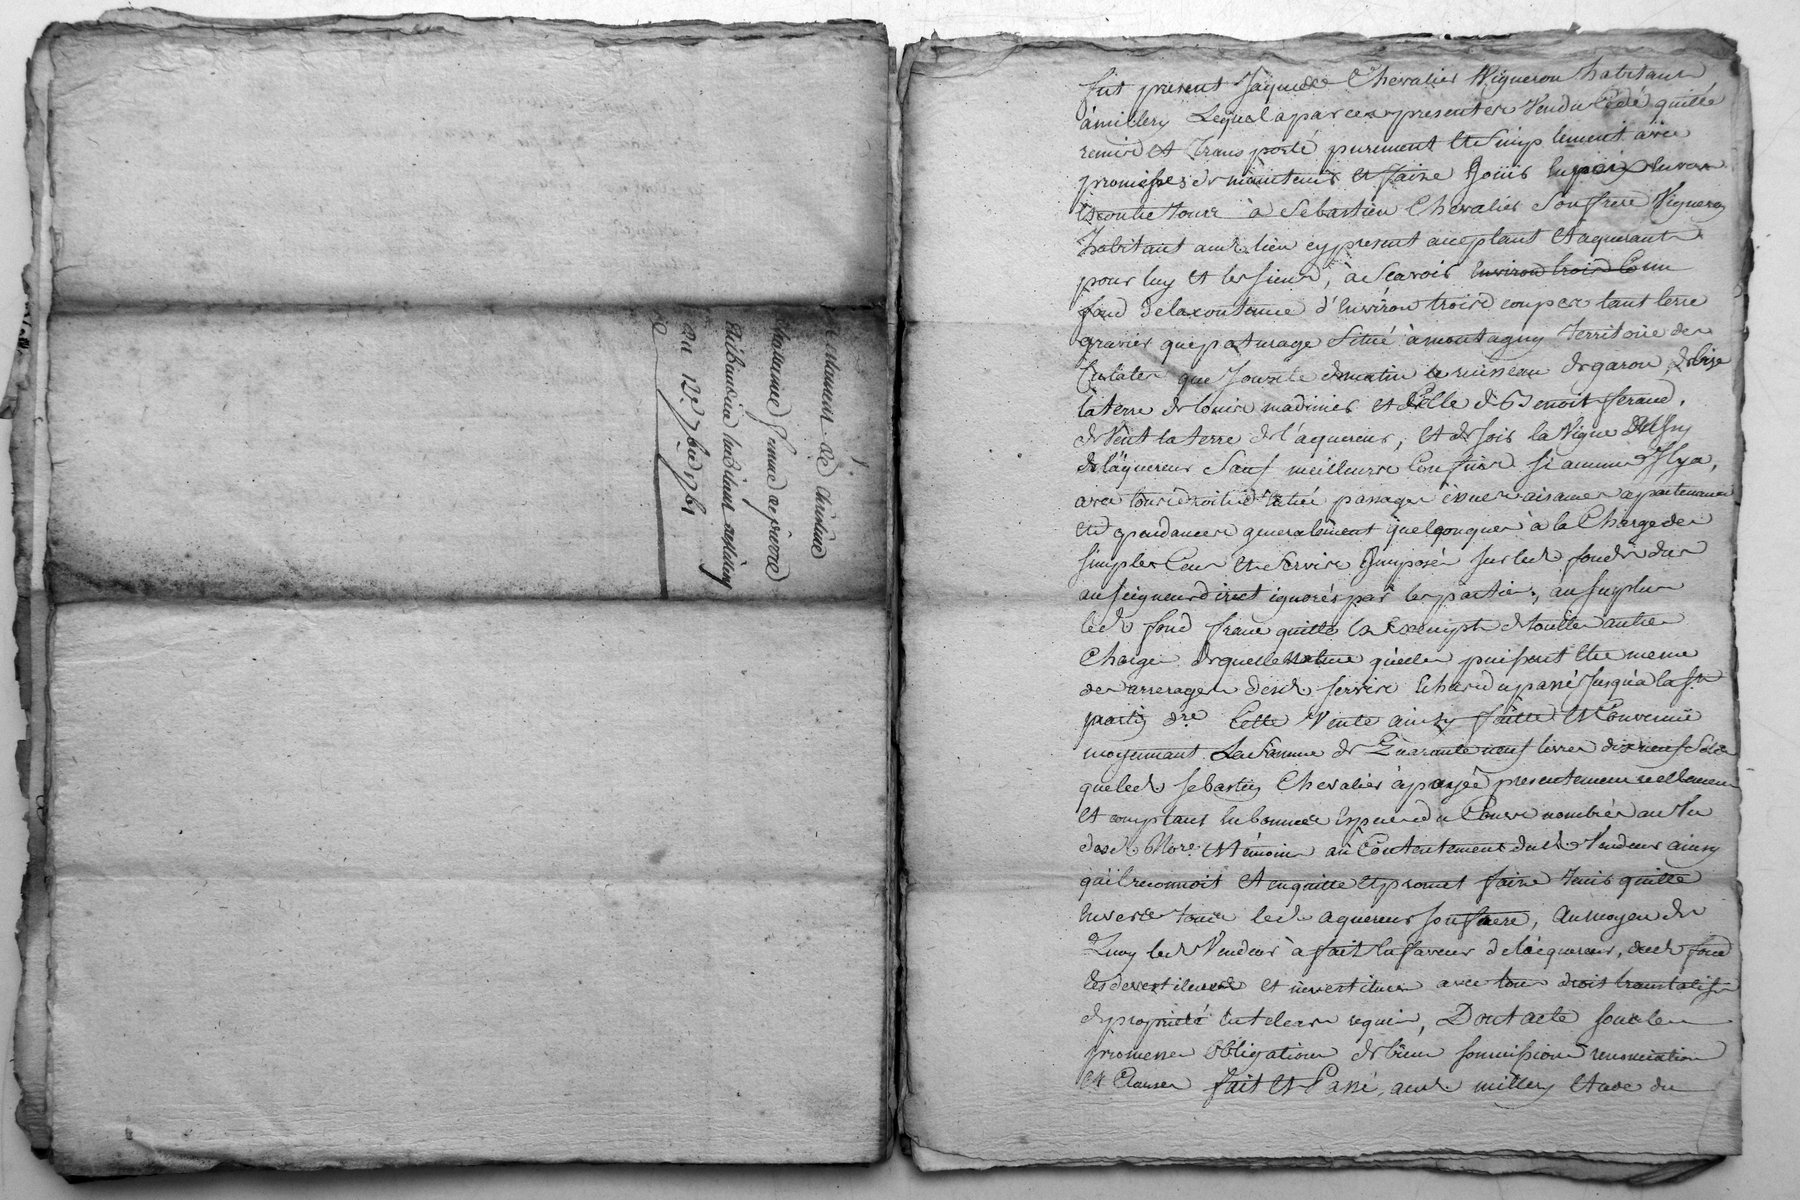 Testament de Christine
femme de pierre
habitant à millery
Du 12e 7bre 1761
fut present Jaques Chevalier Vigneron habitant
à millery Lequel a par ces presentes Vendu Cédé quitté
remis et Transporté purement et simplement avec
promesses de maintenir et faire Joüir en paix envers
et contre tous à Sebastien Chevalier son frere Vigneron
habitant aud. lieu cy present acceptant et aquerant
pour luy et les siens, à Scavoir environ trois Coup
fond de la contenue d'Environ trois coupes tant terre
gravier que paturage Situé à montagny Territoire de
que Jouxte de matin le ruisseau de garon, de bize
la terre de louis madinier et Celle de Benoit feraud,
de Vent la terre de l'aquereur, et de soir la Vigne
de l'aquereur Sauf meilleurs Confins si aucuns Il y a,
avec tous droits d'entrée passages issues aisances apartenances
et dependances generalement quelconques à la Charge des
simples Cens et Service Imposés sur led. fonds dus
au seigneur direct ignorés par les parties, au surplus
led. fond franc quitte et Exempt de touttes autres
Charges de quelle nature quelles puissent être meme
des arrerages desd. service Echus du passé Jusqu'à la St
martin dre Cette Vente ainsy faitte et Convenüe
moyennant La Somme de Quarante neuf livres dix neuf Sols
que led. Sebastien Chevalier à payée presentement reellement
et comptant en bonnes Especes du Cours nombrées au Vu
desd. Nore. et témoins au Contentement dud. Vendeur ainsy
qu'il reconnoit et en quitte et promet faire tenir quitte
Envers tous led. aquereur son frere, Au moyen de
Quoy led. Vendeur à fait en faveur de l'acquereur, dud. fond
les devestitures et investitures avec tous droits translatifs
de propriété et clauses requis, Dont acte sous les
promesses obligations de biens soumissions renonciations
et Clauses fait et Passé, aud. millery Etude du